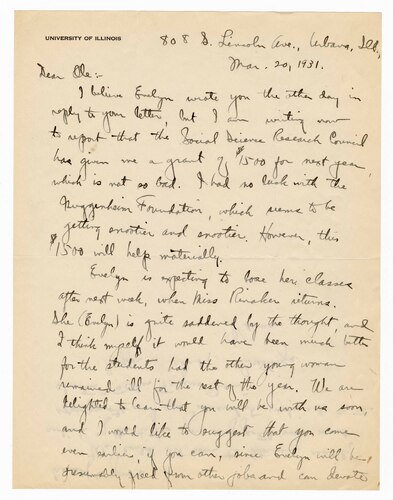 UNIVERSITY OF ILLINOIS
808 S. Lincoln Ave., Urbana, Ill.,
Mar. 20, 1931.
Dear Ole:-
I believe Evelyn wrote you the other day in
reply to your letter, but I am writing now
to report that the Social Science Research Council
has given me a grant of $1500 for next year,
which is not so bad. I had no luck with the
Guggenheim Foundation, which seems to be
getting snootier and snootier. However, this
$1500 will help materially.
Evelyn is expecting to lose her classes
after next week, when Miss Rinaker returns.
She (Evelyn) is quite saddened by the thought, and
I think myself it would have been much better
for the students had the other young woman
remained ill for the rest of the year. We are
delighted to learn that you will be with us soon,
and I would like to suggest that you come
even earlier, if you can, since Evelyn will be
presumably freed from other jobs and can devote